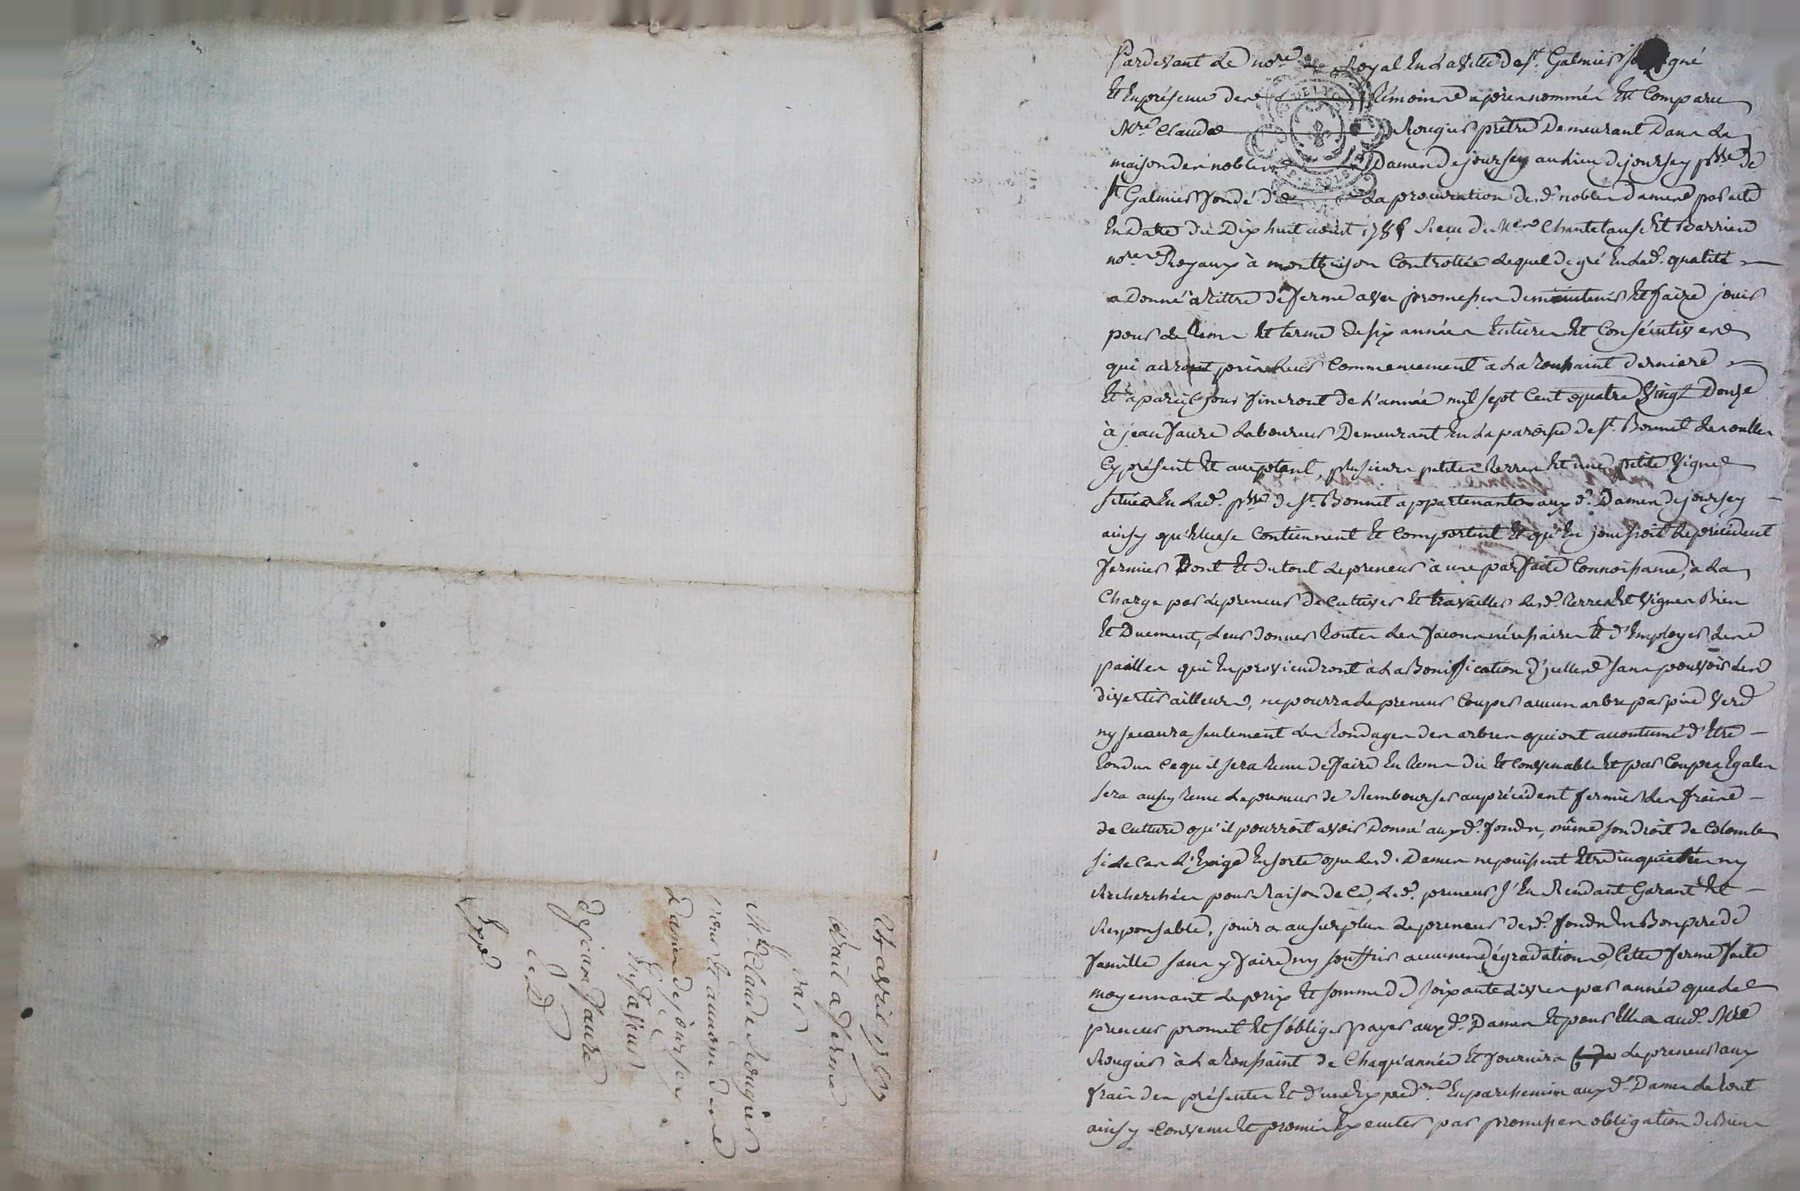 Pardevant Le no.re Royal En La ville de st. Galmier
Et En présence des témoins apres nommés Est Comparu
Mre. Claude Rougier prêtre Demeurant Dans La
maison des nobles Dames de joursey au Lieu de joursey psse. de
st. Galmier fondé de La procuration des d. nobles dames passée
En Date du Dix huit aout Reçu de Mes. Chantelauze Et Barrieu
no.res Royaux à montbrison Controllée Lequel de gré En Lad. qualité
a Donné à tittre de ferme avec promesse de maintenir Et faire jouir
pour Le tems Et terme de six années Entieres Et Consécutives
qui auront pris Leur Commencement à La toussaint derniere
Et à pareil jour finiront de L'année mil sept Cent quatre vingt Douze
à jean faure Laboureur Demeurant En La paroisse de st. Bonnet Les oulles
Cy présent Et acceptant, plusieurs petites terres Et une petite vigne
situées En Lad. psse. de st. Bonnet appartenantes aux d. Dames de joursey
ainsy qu'Elles se Contiennent Et Comportent Et qu'En jouissoit Le précédent
fermier Dont Et du tout Le preneur à une parfaite Connoissance, à La
Charge par Le preneur de Cultiver Et travailler Lesd. terres Et vignes Bien
Et Duement, Leur donner toutes Les façons nécessaires Et d'Employer Les
pailles qui En proviendront à La Bonification d'jcelles sans pouvoir Les
divertir ailleurs, ne pourra Le preneur Couper aucun arbre par pied verd
ny sec aura seulement Les tondages des arbres qui ont accoutumé d'Etre
tondus Ce qu'il sera tenu de faire En tems dû Et Convenable Et par Coupes Egales
sera aussy tenu Le preneur de Rembourser au précédent fermier Les frais
de Culture qu'il pourroit avoir Donné aux d. fonds, même son droit de Colombe
si Le Cas L'Exige En sorte que Lesd. Dames ne puissent Etre inquietées ny
Recherchées pour Raison de Ce, Led. preneur s'En Rendant Garant Et
Responsable, jouira au surplus Le preneur desd. fonds En Bon pere de
famille sans y faire ny souffrir aucunes dégradations, Cette ferme faite
moyennant Le prix Et somme de soixante Livres par année que Le
preneur promet Et s'oblige payer aux d. Dames Et pour Elles aud. Mre
Rougier à La toussaint de Chaqu'année Et fournira Le preneur aux
frais des présentes Et d'une Expedon. En parchemin aux d. Dames Le tout
ainsy Convenu Et promis Executer par promesses obligation de Biens
avril 1787
Bail a ferme
par
Mre Claude Rougier
pour Et au nom des
Dames de joursey
En faveur
de jean faure
Exp.